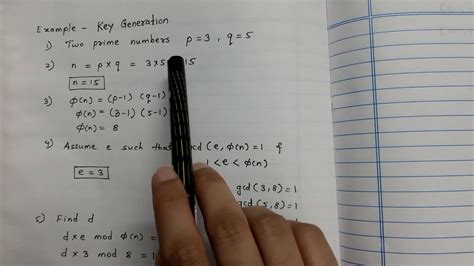 Example - Key Generation
1) Two prime numbers p = 3 , q = 5
2) n = p × q = 3 × 5 15
n = 15
3) φ(n) = (p-1) (q-1)
φ(n) = (3-1) (5-1)
φ(n) = 8
4) Assume e such that gcd (e, φ(n) = 1 &
1 < e < φ(n)
e = 3
gcd (3, 8) = 1
gcd (5, 8) = 1
5) Find d
d × e mod φ(n) =
d × 3 mod 8 = 1